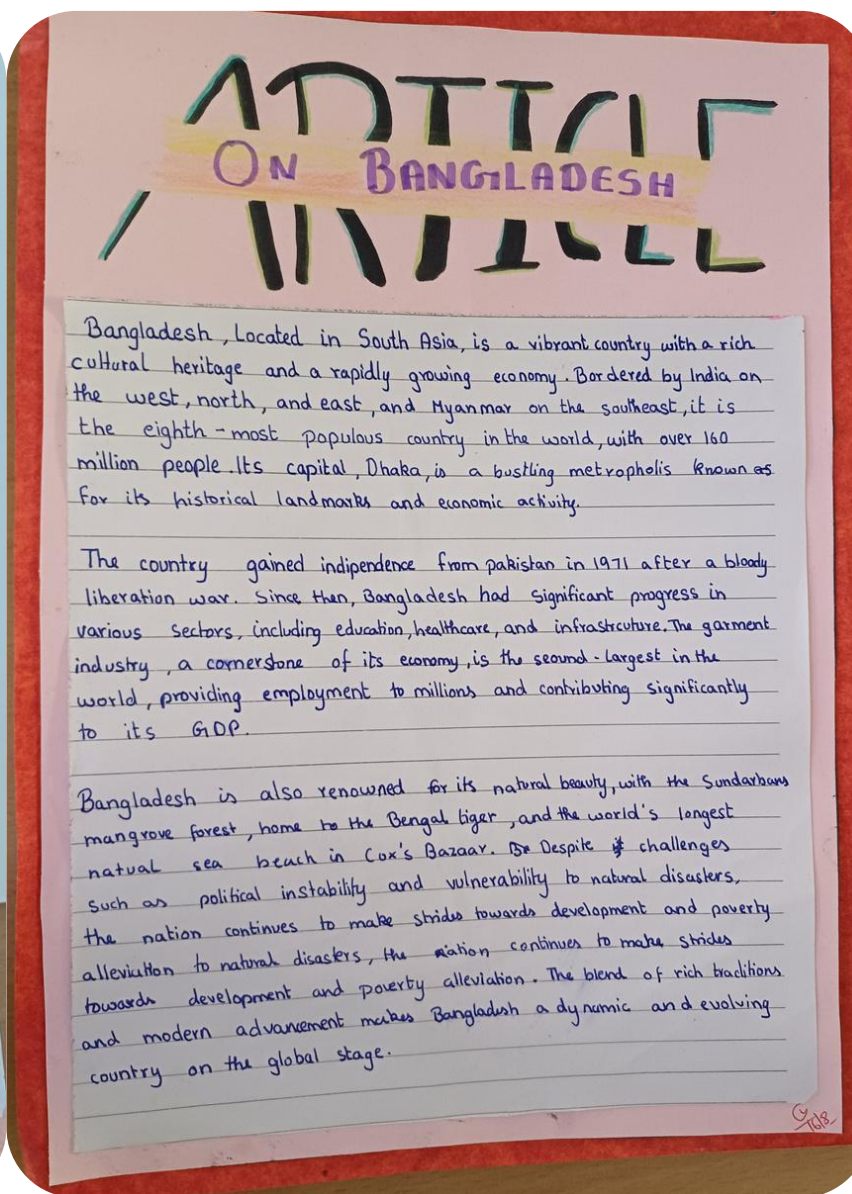 ARTICLE
ON BANGLADESH
Bangladesh, Located in South Asia, is a vibrant country with a rich
cultural heritage and a rapidly growing economy. Bordered by India on
the west, north, and east, and Myanmar on the southeast, it is
the eighth-most populous country in the world, with over 160
million people. Its capital, Dhaka, is a bustling metropholis known as
for its historical landmarks and economic activity.
The country gained indipendence from pakistan in 1971 after a bloody
liberation war. Since then, Bangladesh had significant progress in
various sectors, including education, healthcare, and infrastrcuture. The garment
industry, a cornerstone of its economy, is the seound-largest in the
world, providing employment to millions and contributing significantly
to its GDP.
Bangladesh is also renowned for its natural beauty, with the Sundarbans
mangrove forest, home to the Bengal tiger, and the world's longest
natual sea beach in Cox's Bazaar. Despite challenges
such as political instability and vulnerability to natural disasters,
the nation continues to make strides towards development and poverty
alleviation to natural disasters, the nation continues to make strides
towards development and poverty alleviation. The blend of rich traditions
and modern advancement makes Bangladesh a dynamic and evolving
country on the global stage.
16/8